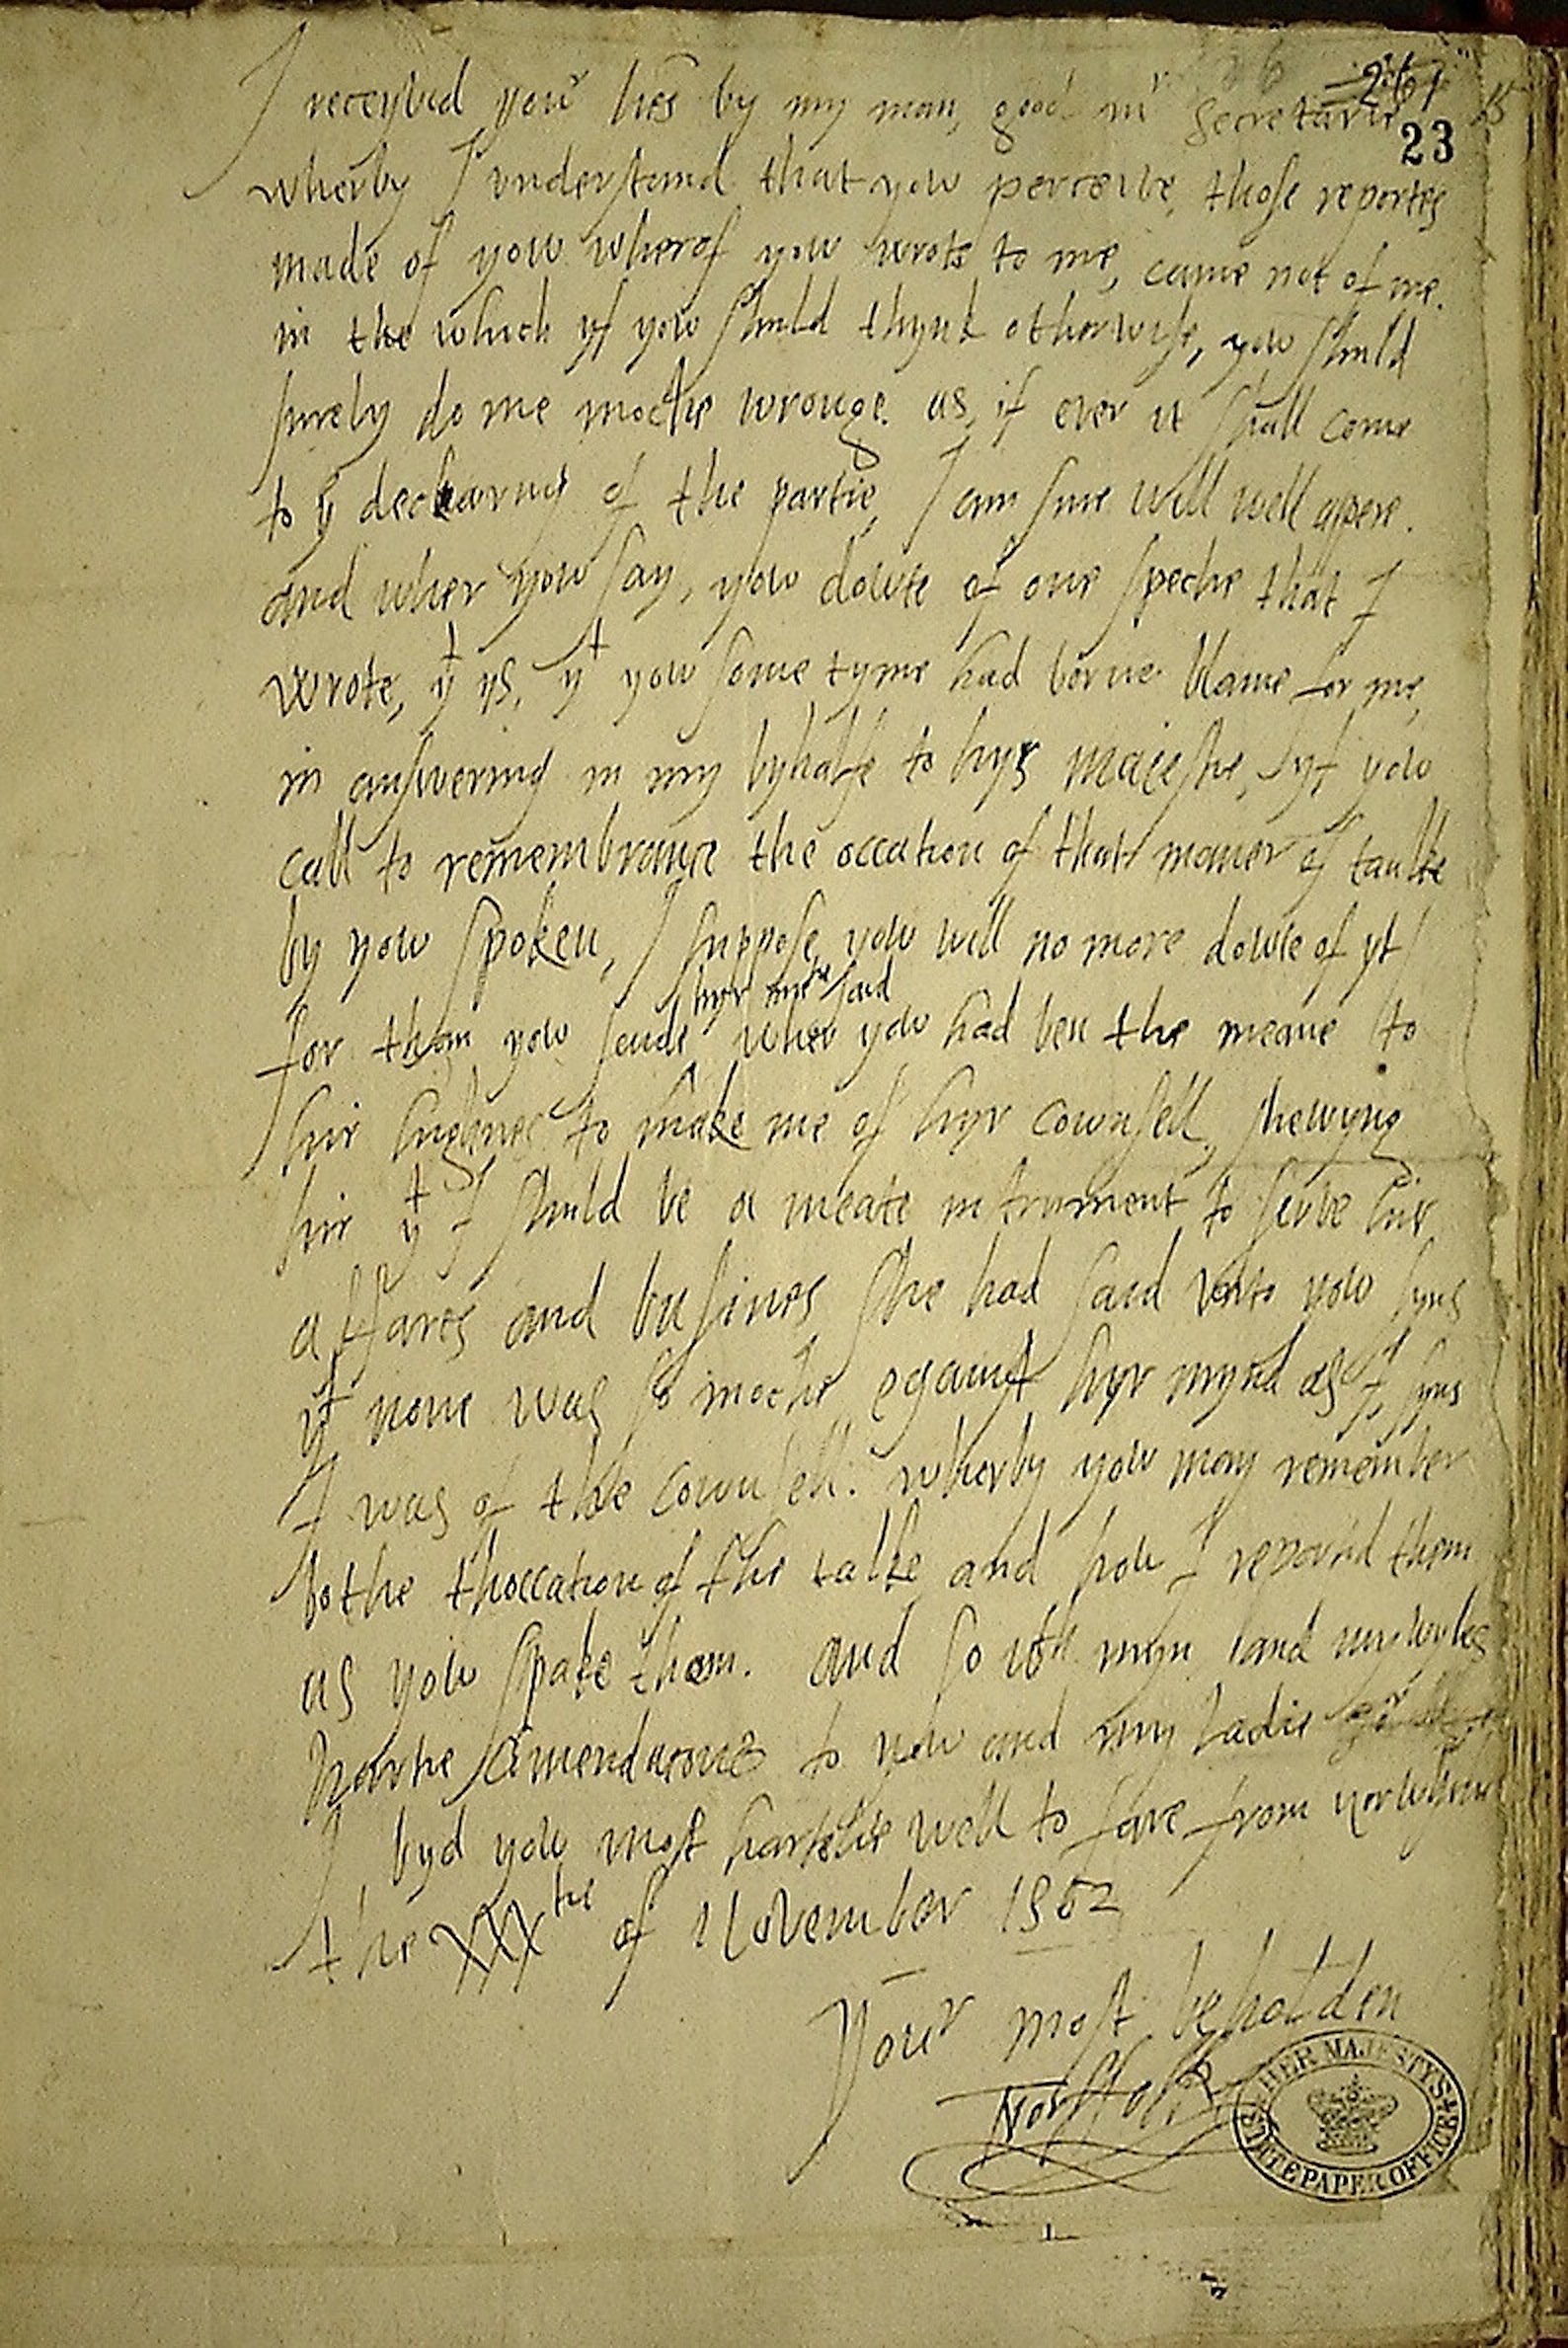 261
23
I receyvid yor lres by my man, good mr Secretarie
wherby I understand that yow perceive, those reportes
made of yow wherof yow wrote to me, came not of me.
in the which yf yow shuld thynk otherwise, yow shuld
surely do me moche wronge. as, if ever it shall come
to ye declaring of the partie, I am sure will well apere.
and wher yow say, yow doute of one speche that I
wrote, yt ys, yt yow some tyme had borne blame for me,
in answering in my byhalfe to hyr maiestie, yf yow
call to remembraunce the occation of that maner of taulke
by yow spoken, I suppose yow will no more doute of yt
for then yow saide hyr matie said when yow had ben the meane to
hir highnes to make me of hyr counsell, shewyng
hir yt I shuld be a meate instrument to serve hir
affares and busines she had said unto yow syns
yt none was so moche against hyr mynd as I, syns
I was of the counsell. wherby yow may remember
bothe thoccation of the talke and how I them
as yow spake them. and so wth myn and my wyfes
hartie comendations to yow and my Ladie
I byd yow most hartelie well to fare from
the XXXthe of November 1562
Your most beholden
Norffolk
HER MAJESTYS STATE PAPER OFFICE